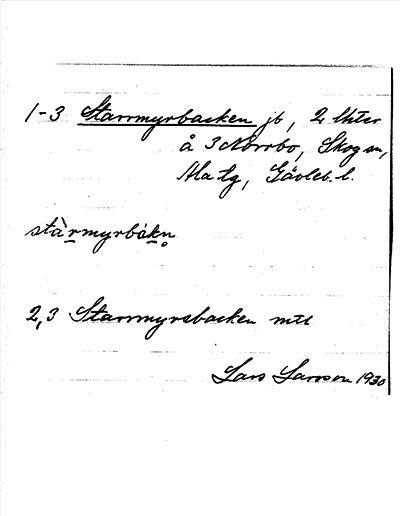 1-3 Starrmyrbacken jb, 2 lhter
å 3 Norrbo, Skog sn,
Ala tg, Gävleb. l.
stàrmyrbákn̥
2,3 Starrmyrsbacken mtl
Lars Larsson 1930